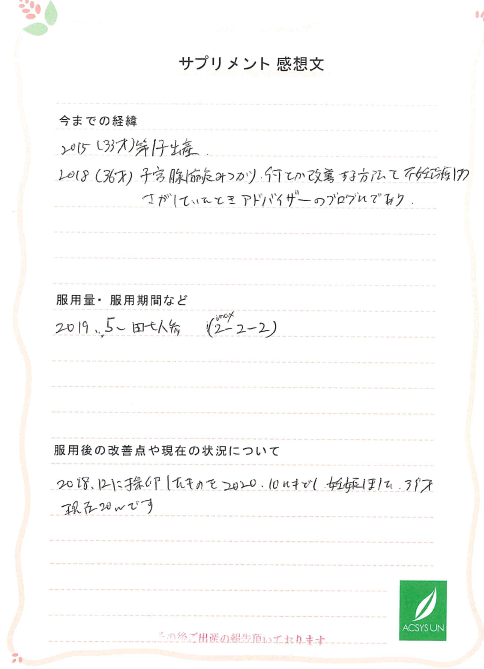 サプリメント 感想文
今までの経緯
2015 (33才) 第1子出産.
2018 (36才) 子宮腺筋症みつかり. 何とか改善する方法で
さがしていたときアドバイザーのブログ
服用量・服用期間など
2019. 5~ 田七人参 (2-2-2)
服用後の改善点や現在の状況について
2018.12に採卵したものを2020.10にもどし 妊娠しました.
現在20wです
その後ご出産の報告頂いております
ACSYSUN